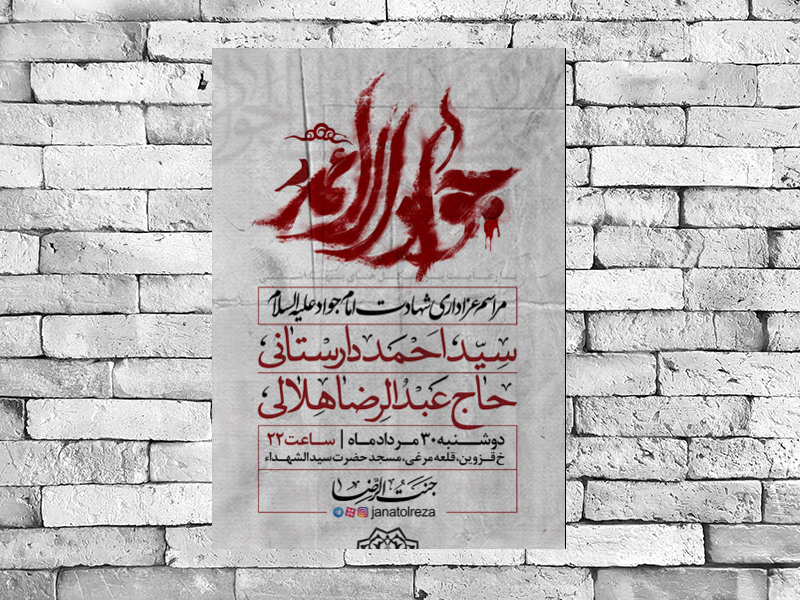 جواد الائمه
مراسم عزاداری شهادت امام جواد علیه السلام
سیّد احمد دارستانی
حاج عبدالرضا هلالی
دوشنبه ۳۰ مرداد ماه | ساعت ۲۲
خ قزوین، قلعه مرغی، مسجد حضرت سیدالشهداء
جنت الرضا
janatolreza